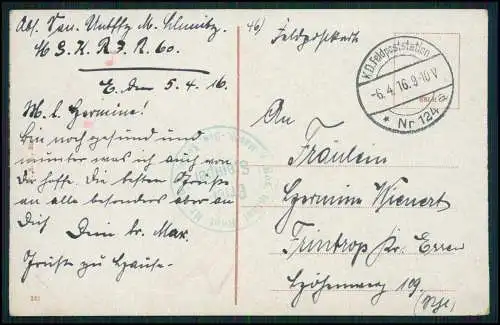 Abs. San. Untffz. M. Schmitz
4/ S. K. R. J. R. 60.
E. den 5.4.16.
M. l. Hermine!
Bin noch gesund und
munter was ich auch von
Dir hoffe. Die besten Grüße
an alle besonders aber an
Dich Dein br. Max.
Grüße zu Hause.
46)
Feldpostkarte
K.D. Feldpoststation
-6.4.16.9-10V
* Nr 124 a
An
Fräulein
Hermine Wienert
Frintrop Kr. Essen
Höhenweg 109.